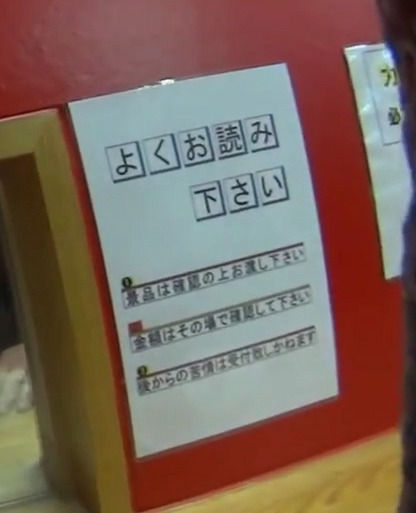 よくお読み
下さい
景品は確認の上お渡し下さい
金額はその場で確認して下さい
後からの苦情は受付致しかねます
必